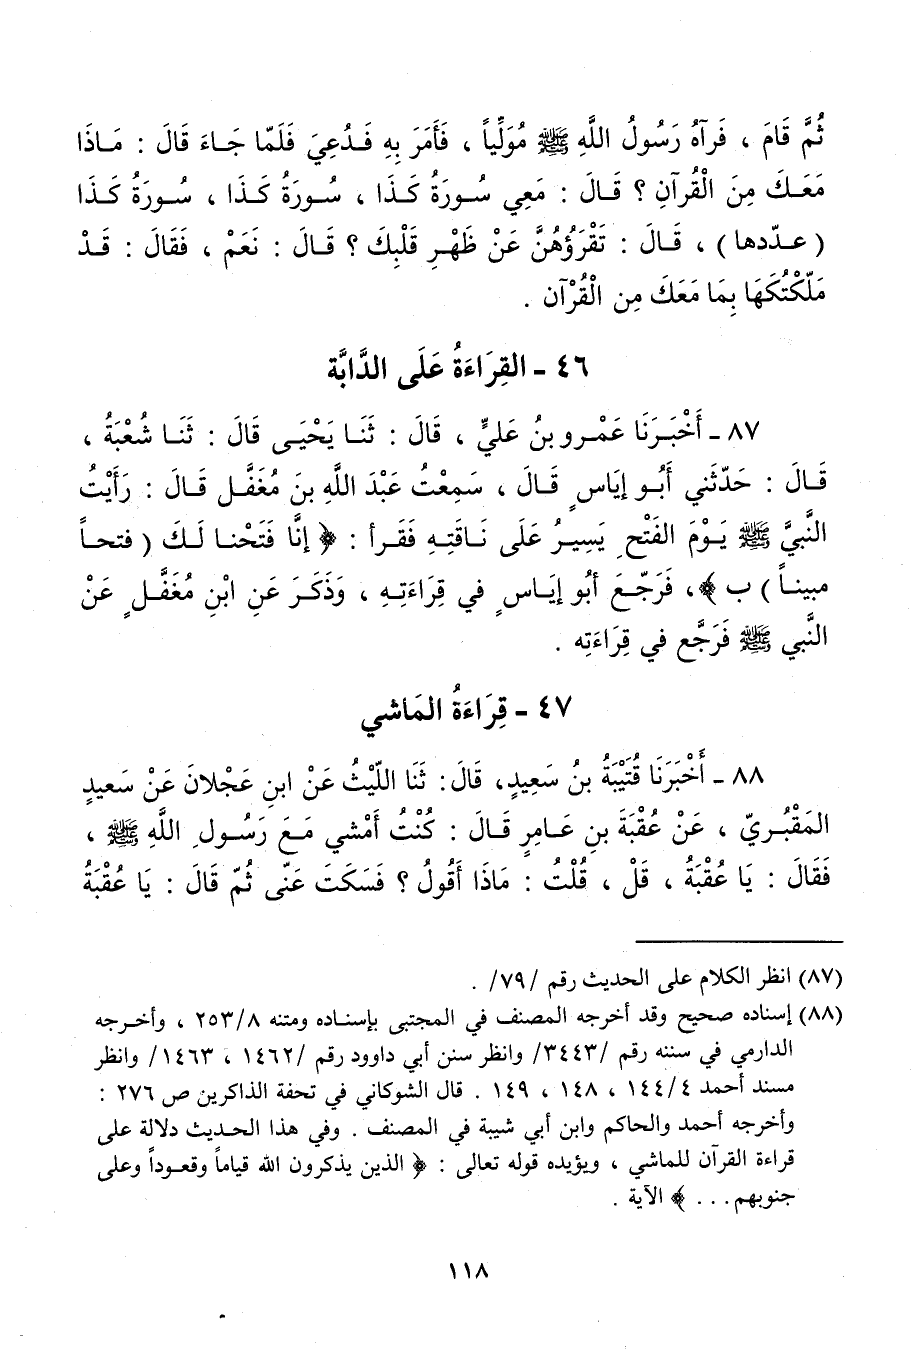 ثُمَّ قَامَ ، فَرآهُ رَسُولُ اللَّهِ ﷺ مُوَلِّياً ، فَأَمَرَ بِهِ فَـدُعِيَ فَلَمّا جَـاءَ قَالَ : مَـاذَا
مَعَـكَ مِنَ الْقُرآنِ ؟ قَـالَ : مَعِي سُـورَةُ كَـذَا ، سُـورَةُ كَـذَا ، سُـورَةُ كَذَا
( عـدّدها ) ، قَـالَ : تَقْرَؤُهُنَّ عَنْ ظَهْـرِ قَلْبِكَ ؟ قَـالَ : نَعَمْ ، فَقَالَ : قَـدْ
مَلّكْتُكَهَا بِمَا مَعَكَ مِن الْقُرْآن .
٤٦ - القِرَاءَةُ عَلَى الدَّابَّة
٨٧ - أَخْبَـرَنَا عَمْـرو بنُ عَليٍّ ، قَالَ : ثَنَـا يَحْيَـى قَالَ : ثَنَـا شُعْبَةُ ،
قَـالَ : حَدّثَني أَبُـو إيَاسٍ قَـالَ ، سَمِعْتُ عَبْدَ اللَّهِ بنَ مُغَفَّـل قَـالَ : رَأَيْتُ
النَّبيَّ ﷺ يَـوْمَ الفَتْحِ يَسِيـرُ عَلَى نَـاقَتِـهِ فَقَـرأ : ﴿ إنَّا فَتَحْنـا لَـكَ ( فتحـاً
مبينـاً ) ب ﴾، فَرَجّـعَ أبُو إيَـاسٍ في قِرَاءَتِـهِ ، وَذَكَـرَ عَنِ ابْنِ مُغَفَّـلٍ عَنْ
النَّبي ﷺ فَرَجَّع في قِرَاءَتِه .
٤٧ - قِرَاءَةُ المَاشي
٨٨ - أَخْبَرَنَا قُتَيْبَةُ بنُ سَعِيدٍ، قَالَ: ثَنَا اللّيْثُ عَنْ ابنِ عَجْلانَ عَنْ سَعيدٍ
المَقْبُـريّ ، عَنْ عُقْبَةَ بنِ عَـامِرٍ قَـالَ : كُنْتُ أَمْشي مَـعَ رَسُـولِ اللَّهِ ﷺ ،
فَقَالَ : يَا عُقْبَةُ ، قَلْ ، قُلْتُ : مَاذَا أَقُولُ ؟ فَسَكَتَ عَنّي ثُمّ قَالَ : يَا عُقْبَةُ
(٨٧) انظر الكلام على الحديث رقم /٧٩/ .
(٨٨) إسناده صحيح وقد أخرجه المصنف في المجتبى بإسنـاده ومتنه ٢٥٣/٨ ، وأخـرجه
الدارمي في سننه رقم /٣٤٤٣/ وانظر سنن أبي داوود رقم /١٤٦٢ ، ١٤٦٣/ وانظر
مسند أحمد ١٤٤/٤ ، ١٤٨ ، ١٤٩ . قال الشوكاني في تحفة الذاكرين ص ٢٧٦ :
وأخرجه أحمد والحاكم وابن أبي شيبة في المصنف . وفي هذا الحـديث دلالة على
قراءة القرآن للماشي ، ويؤيده قوله تعالى : ﴿ الذين يذكرون الله قياماً وقعـوداً وعلى
جنوبهم . . . ﴾ الآية .
١١٨